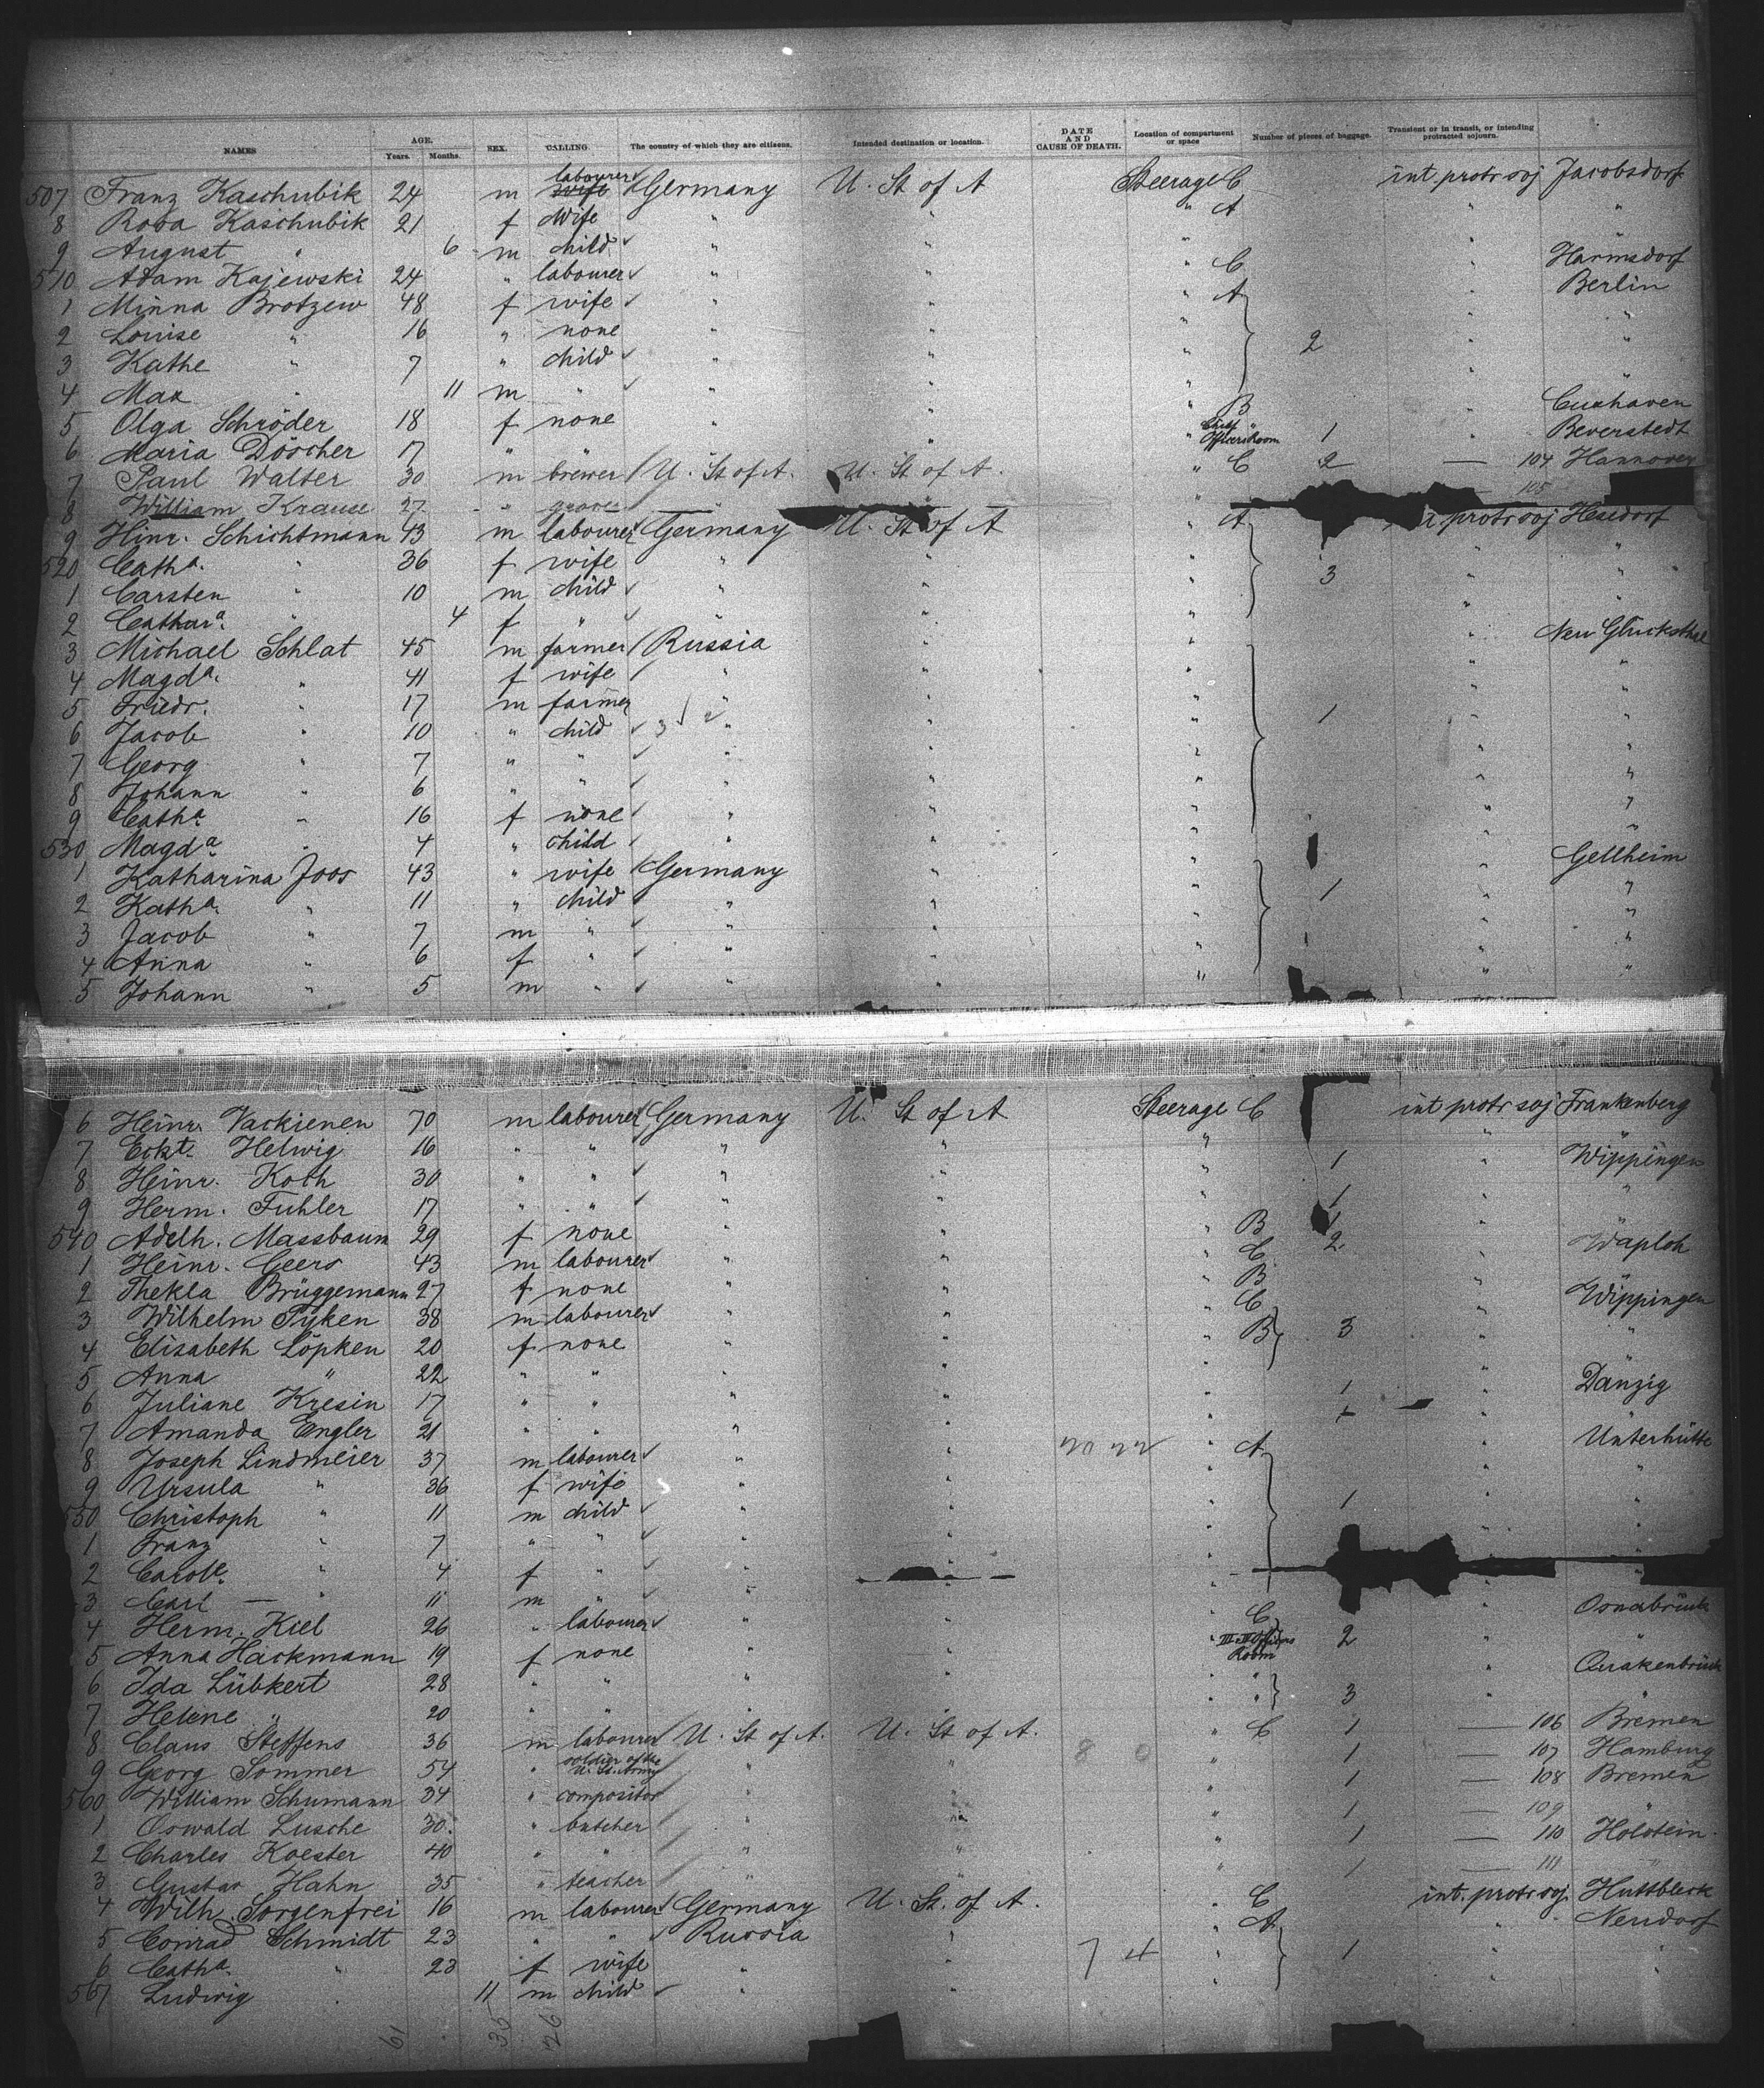 NAMES AGE. Years. Months. SEX. CALLING. The country of which they are citizens. Intended destination or location. DATE AND CAUSE OF DEATH. Location of compartment or space Number of pieces of baggage. Transient or in transit, or intending protracted sojourn.
507 Franz Kaschubik 24 m labourer Germany U. St of A Steerage C int protr soj Jacobsdorf
8 Rosa Kaschubik 21 f wife " " " A " "
9 August " 6 m child " " " "
510 Adam Kajewski 24 " labourer " " " C " Harmsdorf
1 Minna Brotzew 48 f wife " " " A " Berlin
2 Louise " 16 " none " " " " "
3 Kathe " 7 " child " " " 2 " "
4 Max " 11 m " " " " " "
5 Olga Schröder 18 f none " " B " Cuxhaven
6 Maria Döscher 17 " " " " " Chief Officers Room 1 " Beverstedt
7 Paul Walter 30 m brewer U. St of A. U. St of A. " C 2 — 104 Hannover
8 William Krause 27 " " 105
9 Hinr. Schichtmann 43 m labourer Germany U. St of A " A protr soj Hesedorf
520 Catha. " 36 f wife " " " " "
1 Carsten " 10 m child " " " 3 " "
2 Cathara. " 4 f " " " " " "
3 Michael Schlat 45 m farmer Russia " " " Neu Glücksthal
4 Magda. " 41 f wife " " " " "
5 Friedr. " 17 m farmer " " " " "
6 Jacob " 10 " child " " " 1 " "
7 Georg " 7 " " " " " " "
8 Johann " 6 " " " " " " "
9 Catha. " 16 f none " " " " "
530 Magda. " 4 " child " " " " "
1 Katharina Joos 43 " wife Germany " " " Gellheim
2 Katha. " 11 " child " " " 1 " "
3 Jacob " 7 m " " " " " "
4 Anna " 6 f " " " " " "
5 Johann " 5 m " " " " " "
6 Heinr. Vackienen 70 m labourer Germany U. St of A Steerage C int protr soj Frankenberg
7 Eckt. Helwig 16 " " " " " " "
8 Heinr. Koth 30 " " " " " 1 " Wippingen
9 Herm. Fuhler 17 " " " " " 1 " "
540 Adelh. Massbaum 29 f none " " " B 1 "
1 Heinr. Geers 43 m labourer " " " C 2 " Waploh
2 Thekla Brüggemann 27 f none " " " B "
3 Wilhelm Tyken 38 m labourer " " " C " Wippingen
4 Elisabeth Löpken 20 f none " " " B 3 " "
5 Anna " 22 " " " " " "
6 Juliane Kresin 17 " " " " " 1 " Danzig
7 Amanda Engler 21 " " " " " 1 "
8 Joseph Lindmeier 37 m labourer " " " A " Unterhütte
9 Ursula " 36 f wife " " " " "
550 Christoph " 11 m child " " " 1 " "
1 Franz " 7 " " " " " " "
2 Carole. " 4 f " " " "
3 Carl — " 11 m " " " " "
4 Herm. Kiel 26 " labourer " " C " Osnabrück
5 Anna Hackmann 19 f none " " Room 2 " "
6 Ida Lübkert 28 " " " " " " " Quakenbrück
7 Helene " 20 " " " " " " 3 " "
8 Claus Steffens 36 m labourer U. St of A. U. St of A. " C 1 — 106 Bremen
9 Georg Sommer 54 " soldier of the U. St. Army " " " 1 — 107 Hamburg
560 William Schumann 34 " compositor " " " 1 — 108 Bremen
1 Oswald Lusche 30. " butcher " " " 1 — 109 "
2 Charles Koester 40 " " " " " 1 — 110 Holstein
3 Gustav Hahn 35 " teacher " " " 1 — 111 "
4 Wilh. Sorgenfrei 16 m labourer Germany U. St. of A. " C int. protr soj. Huttbleck
5 Conrad Schmidt 23 " " Russia " " A " Neudorf
6 Catha. " 23 f wife " " 7 4 " 1 " "
567 Ludwig " 11 m child " " " " "
61 35 26